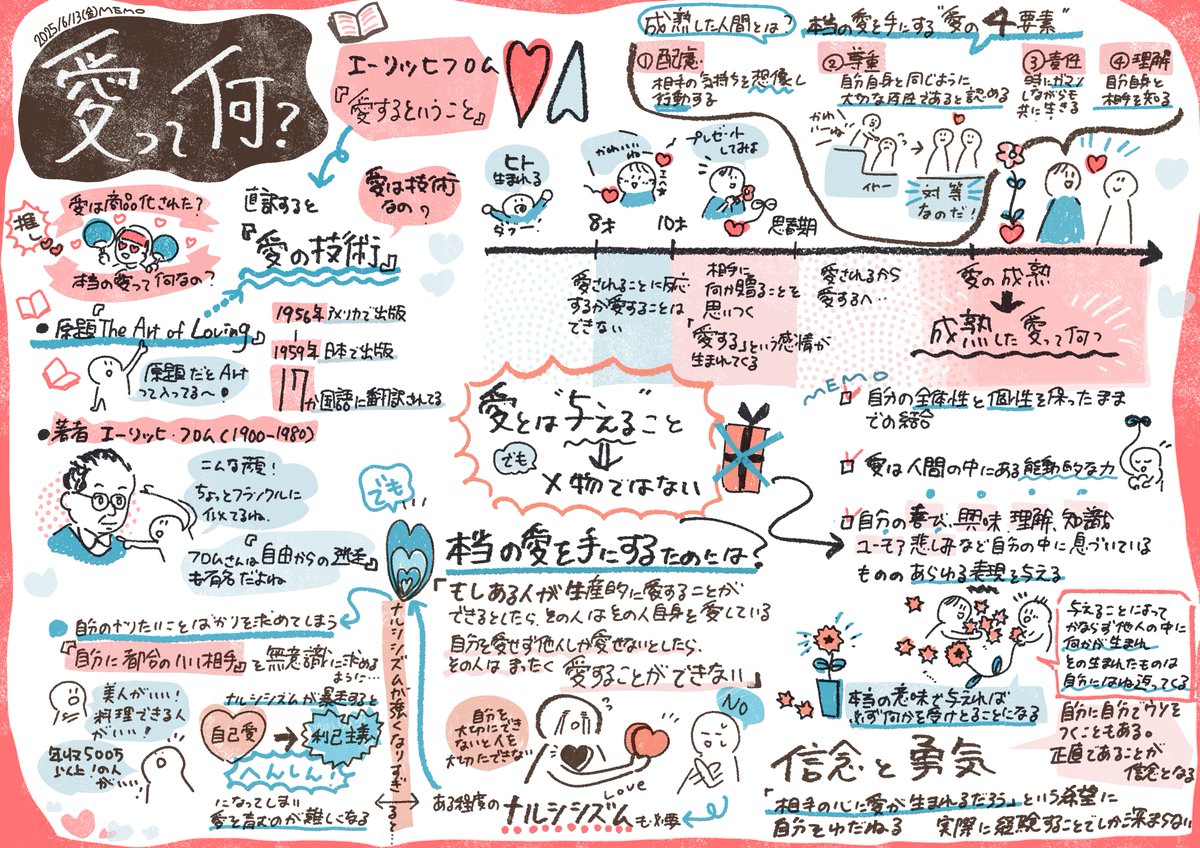 2025/6/13(金)MEMO
愛って何?
エーリッヒフロム
『愛するということ』
直訳すると
『愛の技術』
愛は技術
なの?
愛は商品化された?
推し
本当の愛って何なの?
●原題『The Art of Loving』
原題だとArt
って入ってる〜!
1956年アメリカで出版
1959年日本で出版
17か国語に翻訳されてる
●著者 エーリッヒ・フロム(1900-1980)
こんな顔!
ちょっとフランクルに
似てるね.
フロムさんは『自由からの逃走』
も有名だよね
成熟した人間とは?
本当の愛を手にする"愛の4要素"
①配慮
相手の気持ちを想像し
行動する
②尊重
自分自身と同じように
大切な存在であると認める
③責任
時にガマン
しながらも
共に生きる
④理解
自分自身と
相手を知る
かわいーね
対等
なのだ!
ヒト
生まれる
かわいいね
プレゼント
してみよ
8才
10才
思春期
愛されることに反応
するが愛することは
できない
相手に
何か贈ることを
思いつく
「愛する」という感情が
生まれてくる
愛されるから
愛するへ…
愛の成熟
成熟した愛って何?
MEMO
自分の全体性と個性を保ったまま
での結合
愛は人間の中にある能動的な力
自分の喜び、興味 理解、知識
ユーモア 悲しみなど自分の中に息づいている
もののあらゆる表現を与える
愛とは"与える"こと
でも
×物ではない
でも
本当の愛を手にするためには?
「もしある人が生産的に愛することが
できるとしたら、その人はその人自身を愛している
自分を愛せず他人しか愛せないとしたら、
その人は まったく 愛することができない」
自分を
大切にでき
ないと人を
大切にできない
LOVE
NO
ある程度のナルシシズムも必要
ナルシシズムが強くなりすぎると…
●自分のやりたいことばかりを求めてしまう
『自分に都合のいい相手』を無意識に求める
ように…
美人がいい!
料理できる人
がいい!
年収500万
以上!の人
がいい!
ナルシシズムが暴走すると
自己愛
利己主義
へんしん!
になってしまい
愛を育むのが難しくなる
本当の意味で与えれば
必ず何かを受けとることになる
与えることによって
かならず他人の中に
何かが生まれ
その生まれたものは
自分にはね返ってくる
自分に自分でウソを
つくこともある。
正直であることが
信念となる
信念と勇気
「相手の心に愛が生まれるだろう」という希望に
自分をゆだねる 実際に経験することでしか深まらない